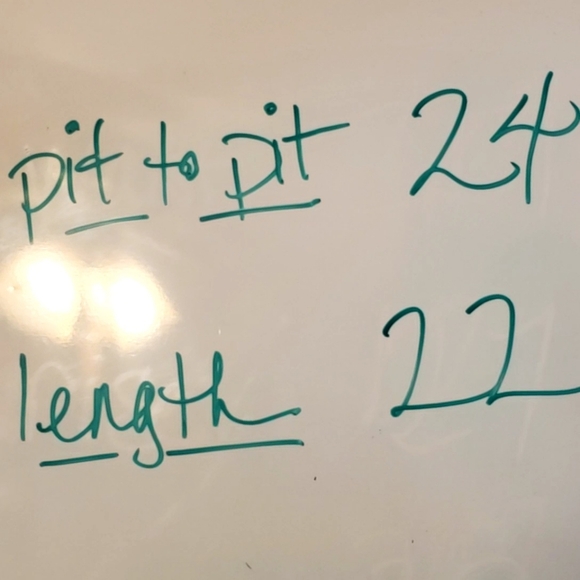 pit to pit 24
length 22